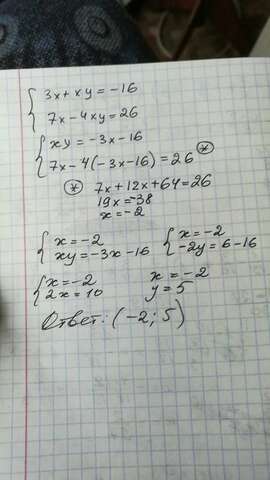 3x+xy=-16
7x-4xy=26
xy=-3x-16
7x-4(-3x-16)=26 *
* 7x+12x+64=26
19x=-38
x=-2
x=-2
xy=-3x-16
x=-2
-2y=6-16
x=-2
2x=10
x=-2
y=5
Ответ: (-2; 5)